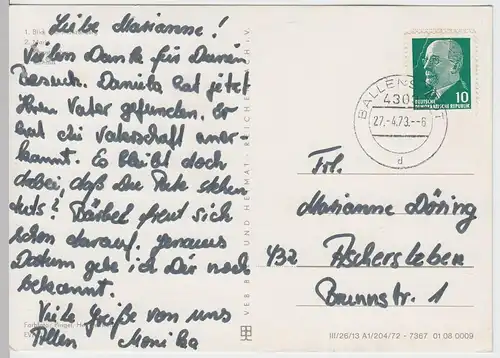 Liebe Marianne!
Vielen Dank für Deinen
Besuch. Daniela hat jetzt
Ihren Vater gefunden. Er
hat die Vaterschaft aner-
kannt. Es bleibt doch
dabei, daß Du Pate stehen
tust? Bärbel freut sich
schon darauf, genaues
Datum gebe ich Dir noch
bekannt.
Viele Grüße von uns
Allen Monika
1. Blick
VEB BILD UND HEIMAT REICHENBACH I. V.
BALLENS T
430
27.-4.73.--6
d
DEUTSCHE
DEMOKRATISCHE REPUBLIK
10
Frl.
Marianne Döring
432 Aschersleben
Brunnstr. 1
III/26/13 A1/204/72 - 7367 01 08 0009